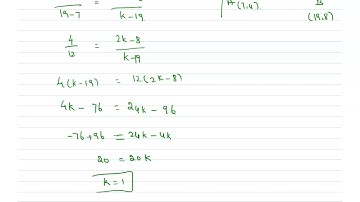 19-7 = k-19
A(7,4) B
(19,8)
4/12 = 2k-8/k-19
4(k-19) = 12(2k-8)
4k - 76 = 24k - 96
-76+96 = 24k-4k
20 = 20k
k=1